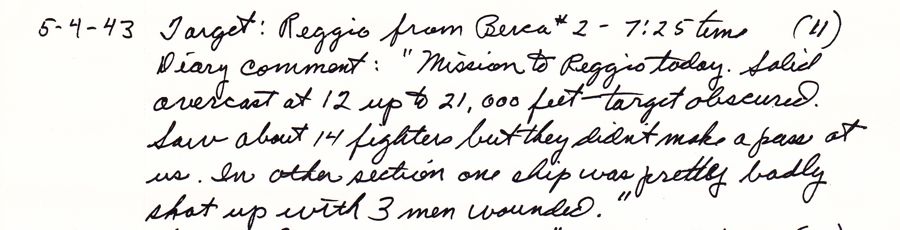 5-4-43 Target: Reggio from Berca #2 - 7:25 time (11)
Diary comment: "Mission to Reggio today. Solid
overcast at 12 up to 21,000 feet - target obscured.
Saw about 14 fighters but they didn't make a pass at
us. In other section one ship was pretty badly
shot up with 3 men wounded."